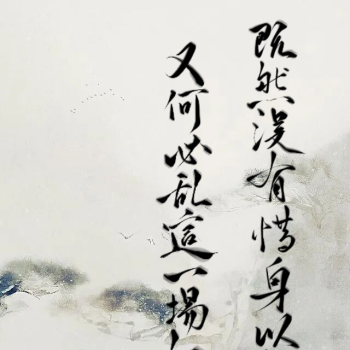 既然没有惜身以
又何必乱这一场